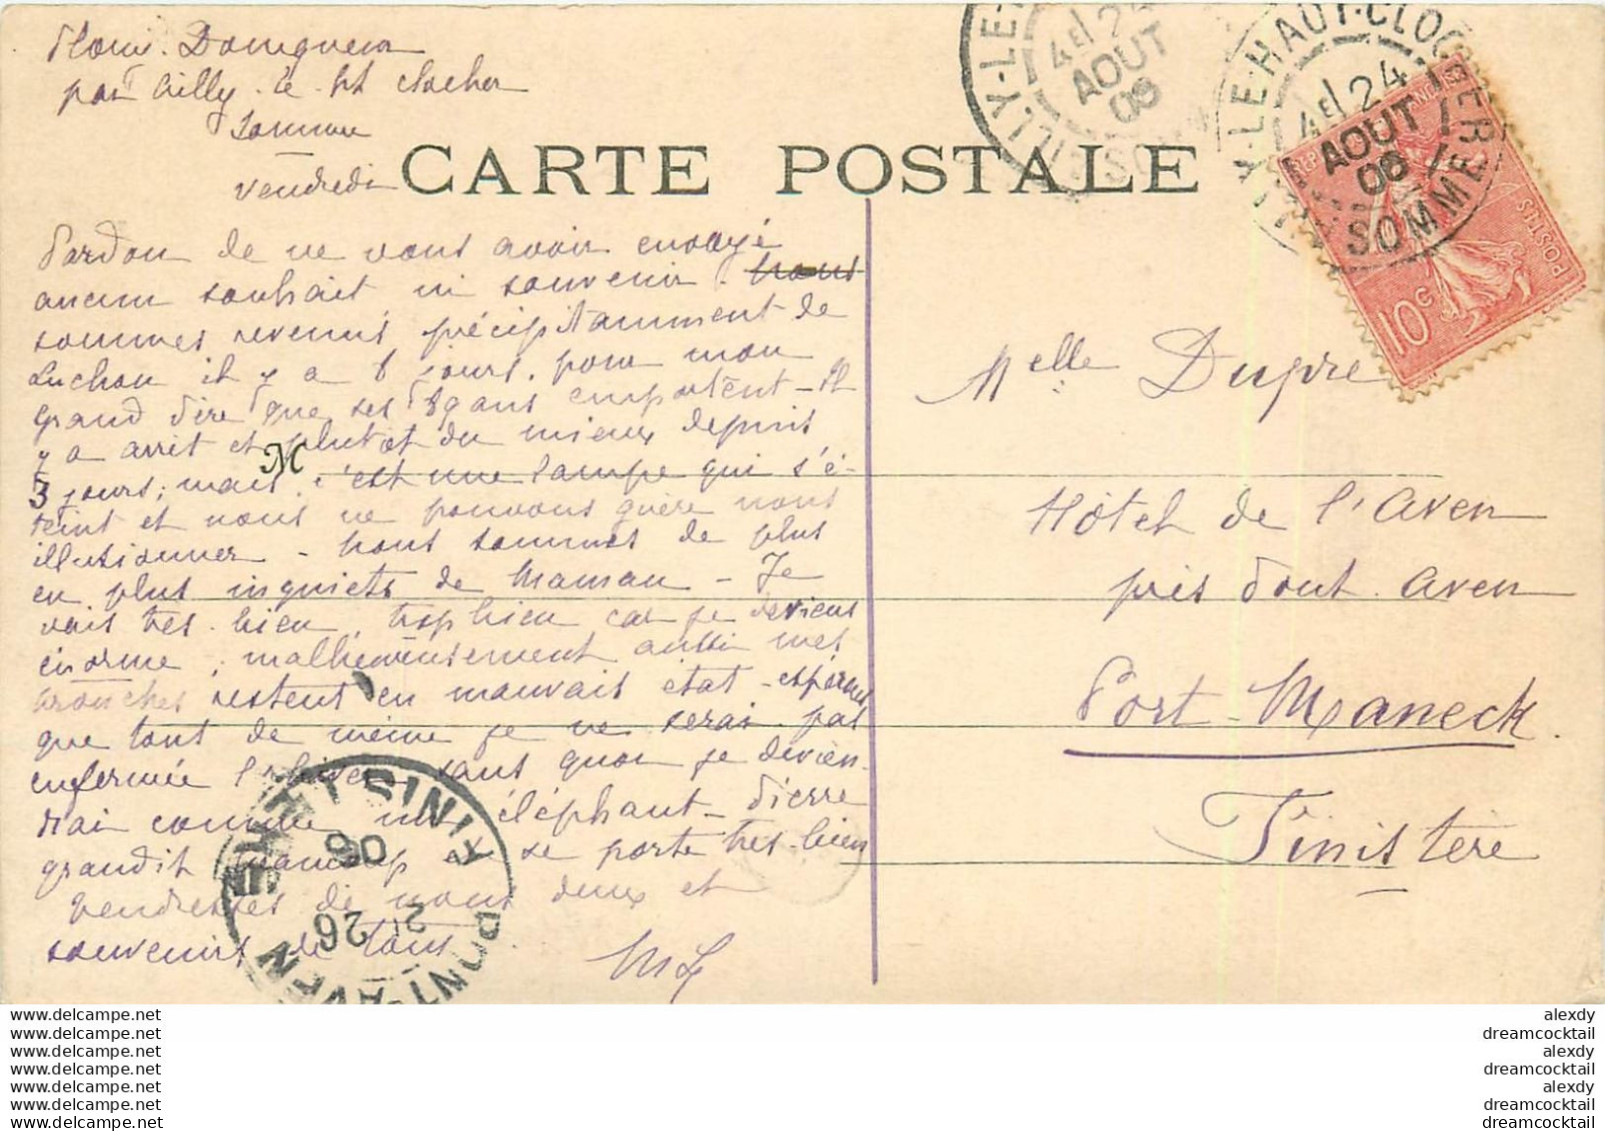 par Ailly-le-ht clocher
Somme
vendredi
CARTE POSTALE
Pardon de ne vous avoir envoyé
aucun souhait ni souvenir. Nous
sommes revenus précipitamment de
Luchon il y a 8 jours, pour mon
grand Père que ses 89 ans emportent - Il
y a arrêt et plutôt du mieux depuis
3 jours; mais c'est une lampe qui s'é-
teint et nous ne pouvons guère nous
illusionner - Nous sommes de plus
en plus inquiets de Maman - Je
vais très bien, trop bien car je deviens
énorme, malheureusement aussi mes
bronches restent en mauvais état - espérons
que tout de même je ne serai pas
enfermée l'hiver sans quoi je devien-
drai comme un éléphant - Pierre
grandit beaucoup et se porte très bien
Tendresses de nous deux et
souvenirs de tous
Melle Dupre
Hôtel de l'Aven
près Pont-Aven
Port-Maneck
Finistère
AILLY-LE-HAUT-CLOCHER
4E/24
AOUT
06
SOMME
10c
POSTES
PONT-AVEN
FINISTERE
26
06
www.delcampe.net
www.delcampe.net
www.delcampe.net
www.delcampe.net
www.delcampe.net
www.delcampe.net
www.delcampe.net
alexdy
dreamcocktail
alexdy
dreamcocktail
alexdy
dreamcocktail
dreamcocktail